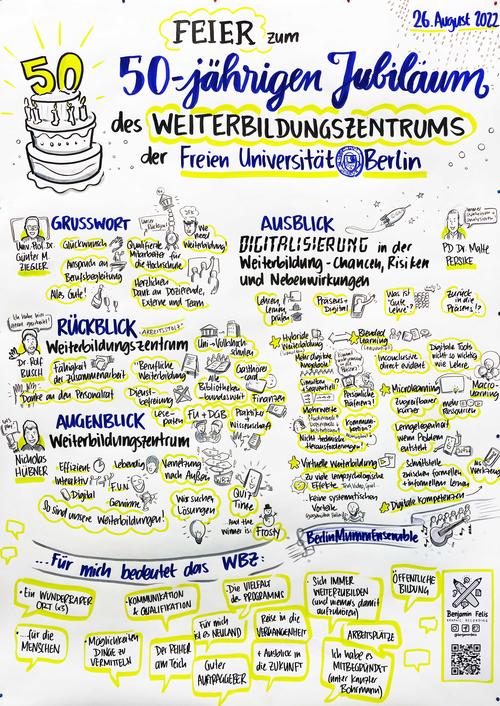 26. August 2022
50
FEIER zum
50-jährigen Jubiläum
des WEITERBILDUNGSZENTRUMS
der Freien Universität Berlin
GRUSSWORT
Univ.-Prof. Dr.
Günter M.
ZIEGLER
Glückwunsch
Anspruch an
Berufsbegleitung
Alles Gute!
Qualifizierte
Mitarbeiter für
die Hochschule
Herzlichen
Dank an Dozierende,
Externe und Team
We
need
Weiterbildung!
RÜCKBLICK
"ARBEITSSTOLZ"
Weiterbildungszentrum
Dr. Rolf
BUSCH
Fähigkeit
der Zusammenarbeit
Danke an den Personalrat
"Berufliche
Weiterbildung"
Dienst-
befreiung
Uni-Volkshoch-
schulen
Alle
Bibliotheken
bundesweit
Gasthörer-
card
Finanzen
Lese-
paten
FU + DGB
Praktiker
Wissenschaft
AUGENBLICK
Weiterbildungszentrum
Nicholas
HÜBNER
Effizient
Lebendig
Vernetzung
nach Außen
Interaktiv
FUN
Digital
Gewinne
So sind unsere Weiterbildungen!
Wir suchen
Lösungen
QUIZ
Time
And the
winner is:
Frosty
AUSBLICK
DIGITALISIERUNG in der
Weiterbildung - Chancen, Risiken
und Nebenwirkungen
PD Dr. Malte
PERSIKE
Lehren,
Lernen,
prüfen
Präsenz=
Digital
Was ist
gute
Lehre?
Zurück
in die
Präsenz!?
Hybride
Weiterbildung
Mehr digitale
Angebote
Mehrwerte
Blended
Learning
Persönliche
Präferenz!
Inconclusive
direct evident
Digitale Tools
nicht so wichtig
wie Lehre
Microlearning
Zugreifbare
kürzer
Macro-
learning
mehr
Ressourcen
Lerngelegenheit
wenn Problem
entsteht
Virtuelle Weiterbildung
Zu viele lernpsychologische
Effekte
keine systematischen
Vorteile
Schnittstelle
zwischen formellen
+ informellen lernen
Werkzeug
Digitale Kompetenzen
BerlinMummEnsemble
...Für mich bedeutet das WBZ:
• Ein WUNDERBARER
ORT (GS)
• KOMMUNIKATION
& QUALIFIKATION
• Die VIELFALT
des PROGRAMMS
• Sich IMMER
WEITERZUBILDEN
(und niemals damit
aufzuhören)
ÖFFENTLICHE
BILDUNG
...für die
MENSCHEN
Möglichkeiten
DINGE zu
VERMITTELN
Der REIHER
am Teich
Für mich
ist es NEULAND
Guter
AUFTRAGGEBER
Reise in die
VERGANGENHEIT
+ Ausblick in
die ZUKUNFT
ARBEITSPLÄTZE
Ich habe es
MITBEGRÜNDET
(unter Kanzler
Bohrmann)
Benjamin Felis
GRAPHIC RECORDING